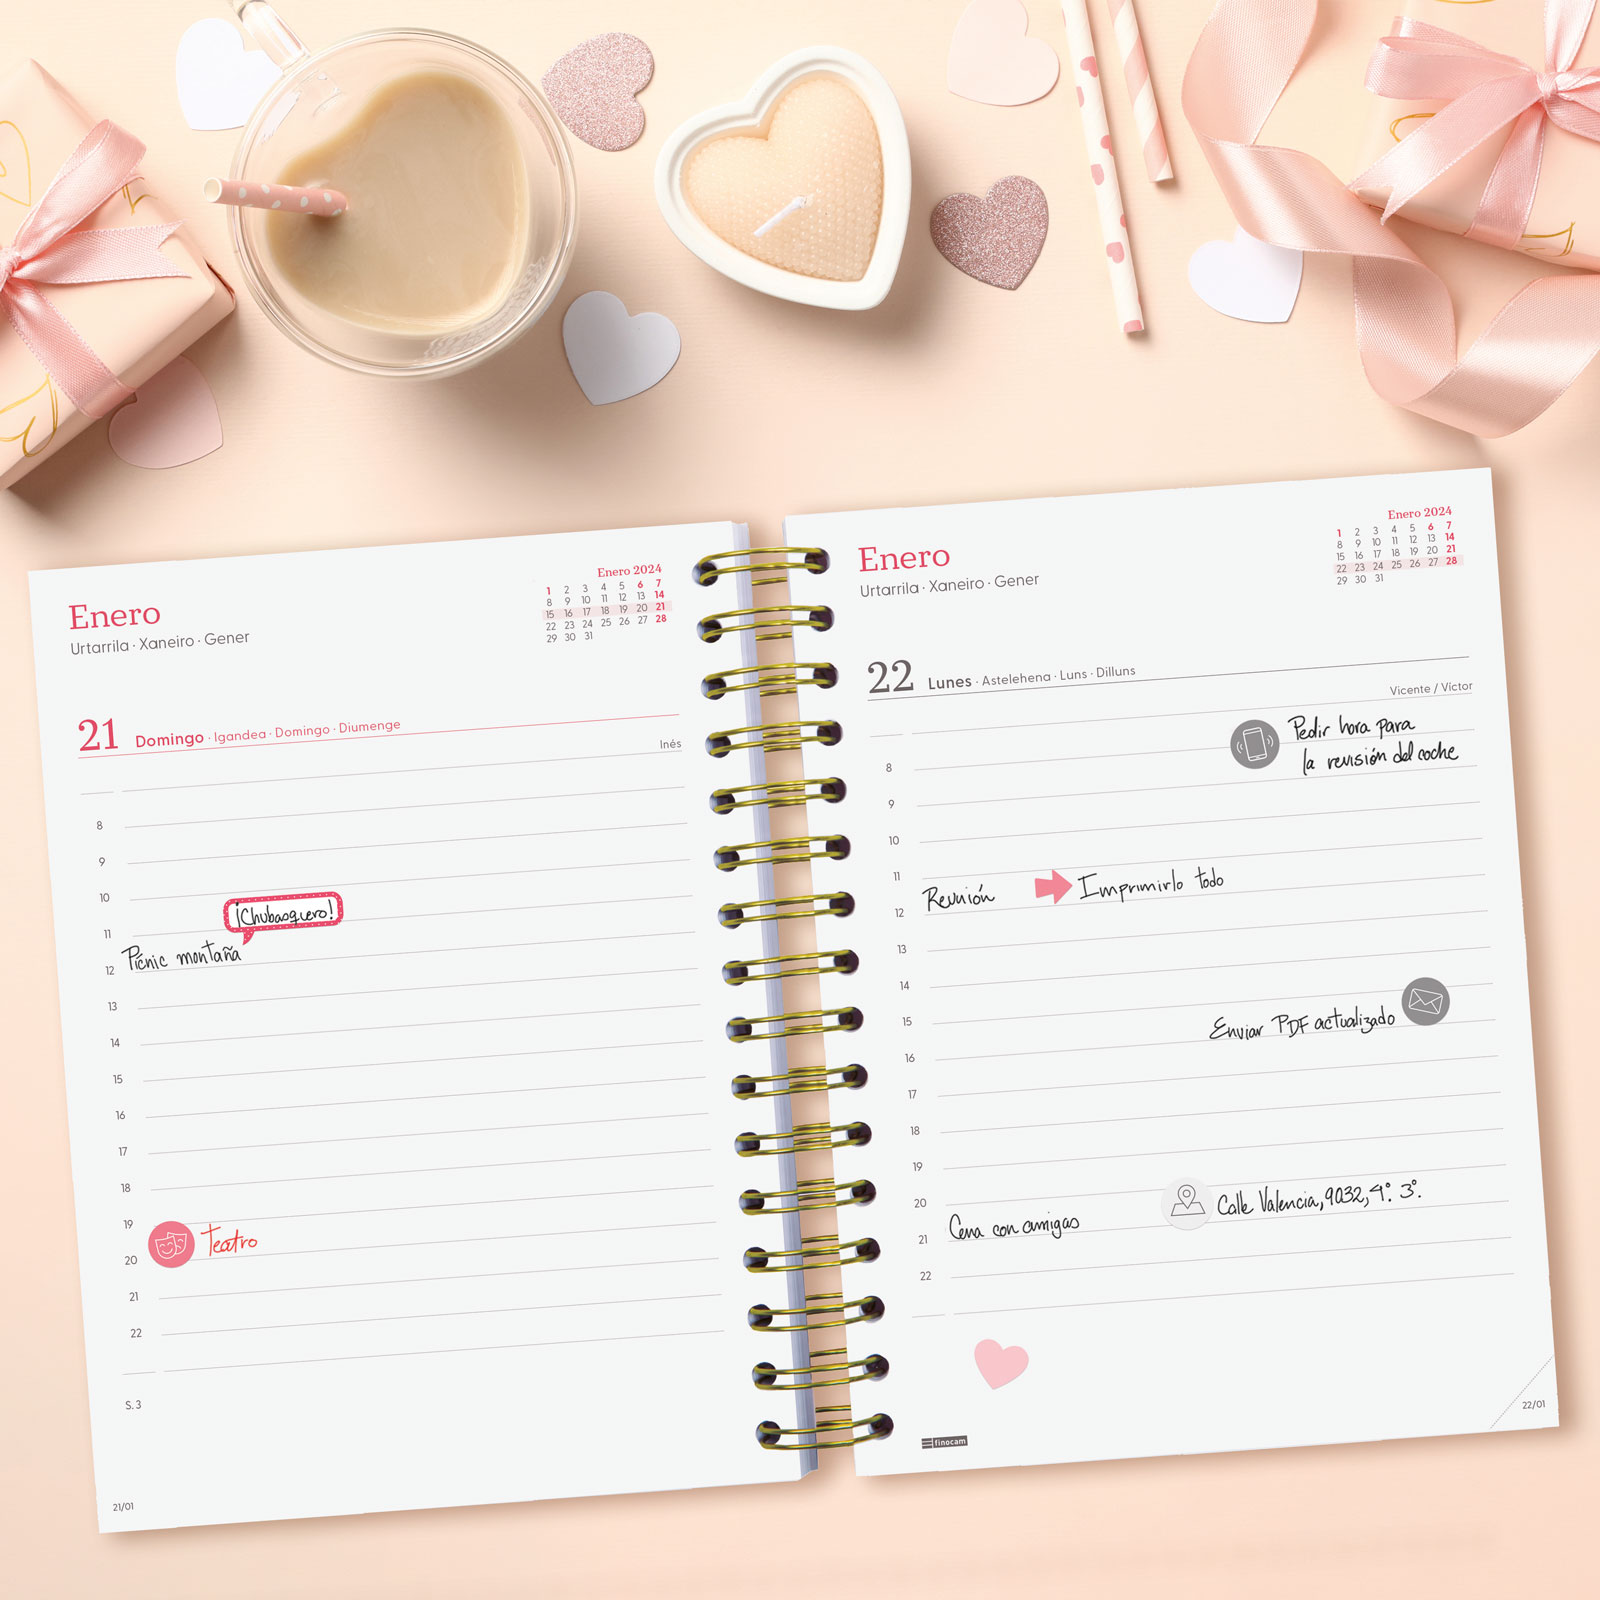 Enero
Urtarrila · Xaneiro · Gener
Enero 2024
1 2 3 4 5 6 7
8 9 10 11 12 13 14
15 16 17 18 19 20 21
22 23 24 25 26 27 28
29 30 31
21 Domingo · Igandea · Domingo · Diumenge
Inés
8
9
10
¡Chubasquero!
11
Picnic montaña
12
13
14
15
16
17
18
19
Teatro
20
21
22
S. 3
21/01
Enero
Urtarrila · Xaneiro · Gener
Enero 2024
1 2 3 4 5 6 7
8 9 10 11 12 13 14
15 16 17 18 19 20 21
22 23 24 25 26 27 28
29 30 31
22 Lunes · Astelehena · Luns · Dilluns
Vicente / Víctor
Pedir hora para
la revisión del coche
8
9
10
11
Reunión Imprimirlo todo
12
13
14
15
Enviar PDF actualizado
16
17
18
19
20
Calle Valencia, 9032, 4º. 3º.
Cena con amigas
21
22
finocam
22/01